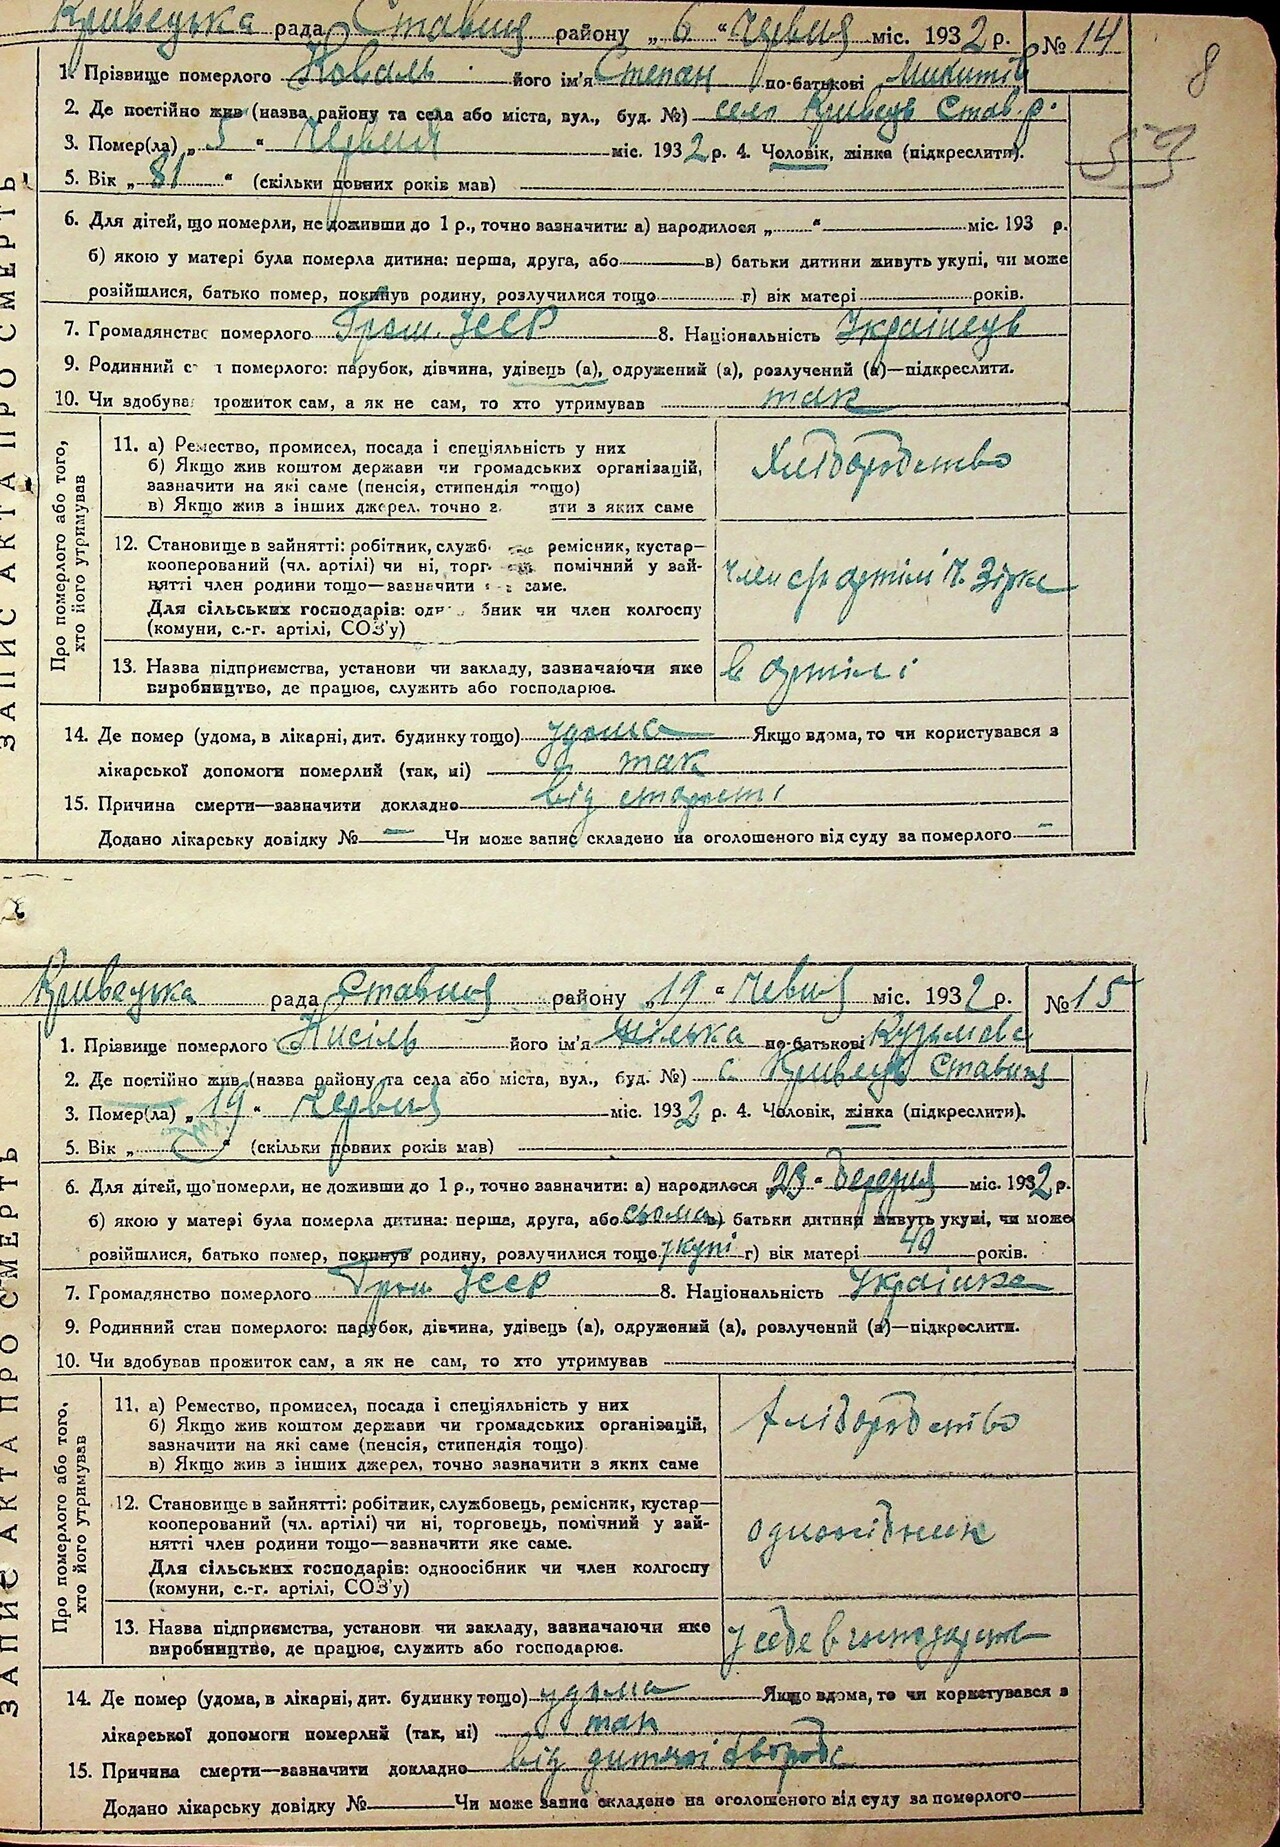 Кривецька рада Ставищ району „ 6 “ Червня міс. 1932 р. № 14
8
1. Прізвище померлого Коваль його ім'я Степан по-батькові Микитів
2. Де постійно жив (назва району та села або міста, вул., буд. №) село Кривець Став. р.
3. Помер(ла) „ 5 “ Червня міс. 1932 р. 4. Чоловік, жінка (підкреслити).
59
5. Вік „ 81 “ (скільки повних років мав)
6. Для дітей, що померли, не доживши до 1 р., точно зазначити: а) народилося „ “ міс. 193 р.
б) якою у матері була померла дитина: перша, друга, або в) батьки дитини живуть укупі, чи може
розійшлися, батько помер, покинув родину, розлучилися тощо г) вік матері років.
7. Громадянство померлого Гром. УССР 8. Національність Українець
9. Родинний с н померлого: парубок, дівчина, удівець (а), одружений (а), розлучений (а)—підкреслити.
10. Чи здобува прожиток сам, а як не сам, то хто утримував так
ЗАПИС АКТА ПРО СМЕРТЬ
Про померлого або того, хто його утримував
11. а) Ремество, промисел, посада і спеціяльність у них
б) Якщо жив коштом держави чи громадських організацій,
зазначити на які саме (пенсія, стипендія тощо)
в) Якщо жив з інших джерел, точно з ити з яких саме
Хліборобство
12. Становище в зайнятті: робітник, служб ремісник, кустар—
кооперований (чл. артілі) чи ні, торг помічний у зай-
нятті член родини тощо—зазначити саме.
Для сільських господарів: од бник чи член колгоспу
(комуни, с.-г. артілі, СОЗ'у)
член с/г артілі Ч. Зірка
13. Назва підприємства, установи чи закладу, зазначаючи яке
виробництво, де працює, служить або господарює.
в артілі
14. Де помер (удома, в лікарні, дит. будинку тощо) удома Якщо вдома, то чи користувався з
лікарської допомоги померлий (так, ні) так
15. Причина смерти—зазначити докладно від старости
Додано лікарську довідку № — Чи може запис складено на оголошеного від суду за померлого —
Кривецька рада Ставищ району „ 19 “ Чевня міс. 1932 р. № 15
1. Прізвище померлого Кисіль його ім'я Мілька по-батькові Кузьмова
2. Де постійно жив (назва району та села або міста, вул., буд. №) с. Кривець Ставищ
3. Помер(ла) „ 19 “ Червня міс. 1932 р. 4. Чоловік, жінка (підкреслити).
5. Вік „ “ (скільки повних років мав)
6. Для дітей, що померли, не доживши до 1 р., точно зазначити: а) народилося „ 23 “ Березня міс. 1932 р.
б) якою у матері була померла дитина: перша, друга, або сьома в) батьки дитини живуть укупі, чи може
розійшлися, батько помер, покинув родину, розлучилися тощо укупі г) вік матері 40 років.
7. Громадянство померлого Гром. УССР 8. Національність Українка
9. Родинний стан померлого: парубок, дівчина, удівець (а), одружений (а), розлучений (а)—підкреслити.
10. Чи здобував прожиток сам, а як не сам, то хто утримував
ЗАПИС АКТА ПРО СМЕРТЬ
Про померлого або того, хто його утримував
11. а) Ремество, промисел, посада і спеціяльність у них
б) Якщо жив коштом держави чи громадських організацій,
зазначити на які саме (пенсія, стипендія тощо)
в) Якщо жив з інших джерел, точно зазначити з яких саме
Хліборобство
12. Становище в зайнятті: робітник, службовець, ремісник, кустар—
кооперований (чл. артілі) чи ні, торговець, помічний у зай-
нятті член родини тощо—зазначити яке саме.
Для сільських господарів: одноосібник чи член колгоспу
(комуни, с.-г. артілі, СОЗ'у)
одноосібник
13. Назва підприємства, установи чи закладу, зазначаючи яке
виробництво, де працює, служить або господарює.
у себе в господарстві
14. Де помер (удома, в лікарні, дит. будинку тощо) удома Якщо вдома, то чи користувався з
лікарської допомоги померлий (так, ні) так
15. Причина смерти—зазначити докладно від дитячої хвороби
Додано лікарську довідку № Чи може запис складено на оголошеного від суду за померлого